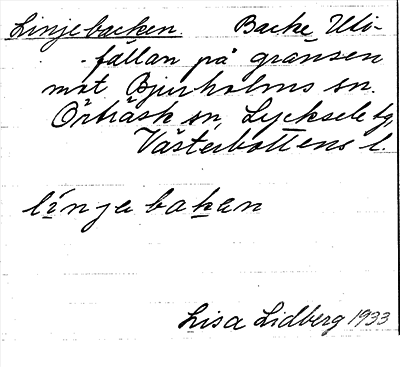 Linjebacken Backe Uti-
-fällan på gränsen
mot Bjurholms sn.
Örträsk sn, Lycksele tg,
Västerbottens l.
linjebakan
Lisa Lidberg 1933